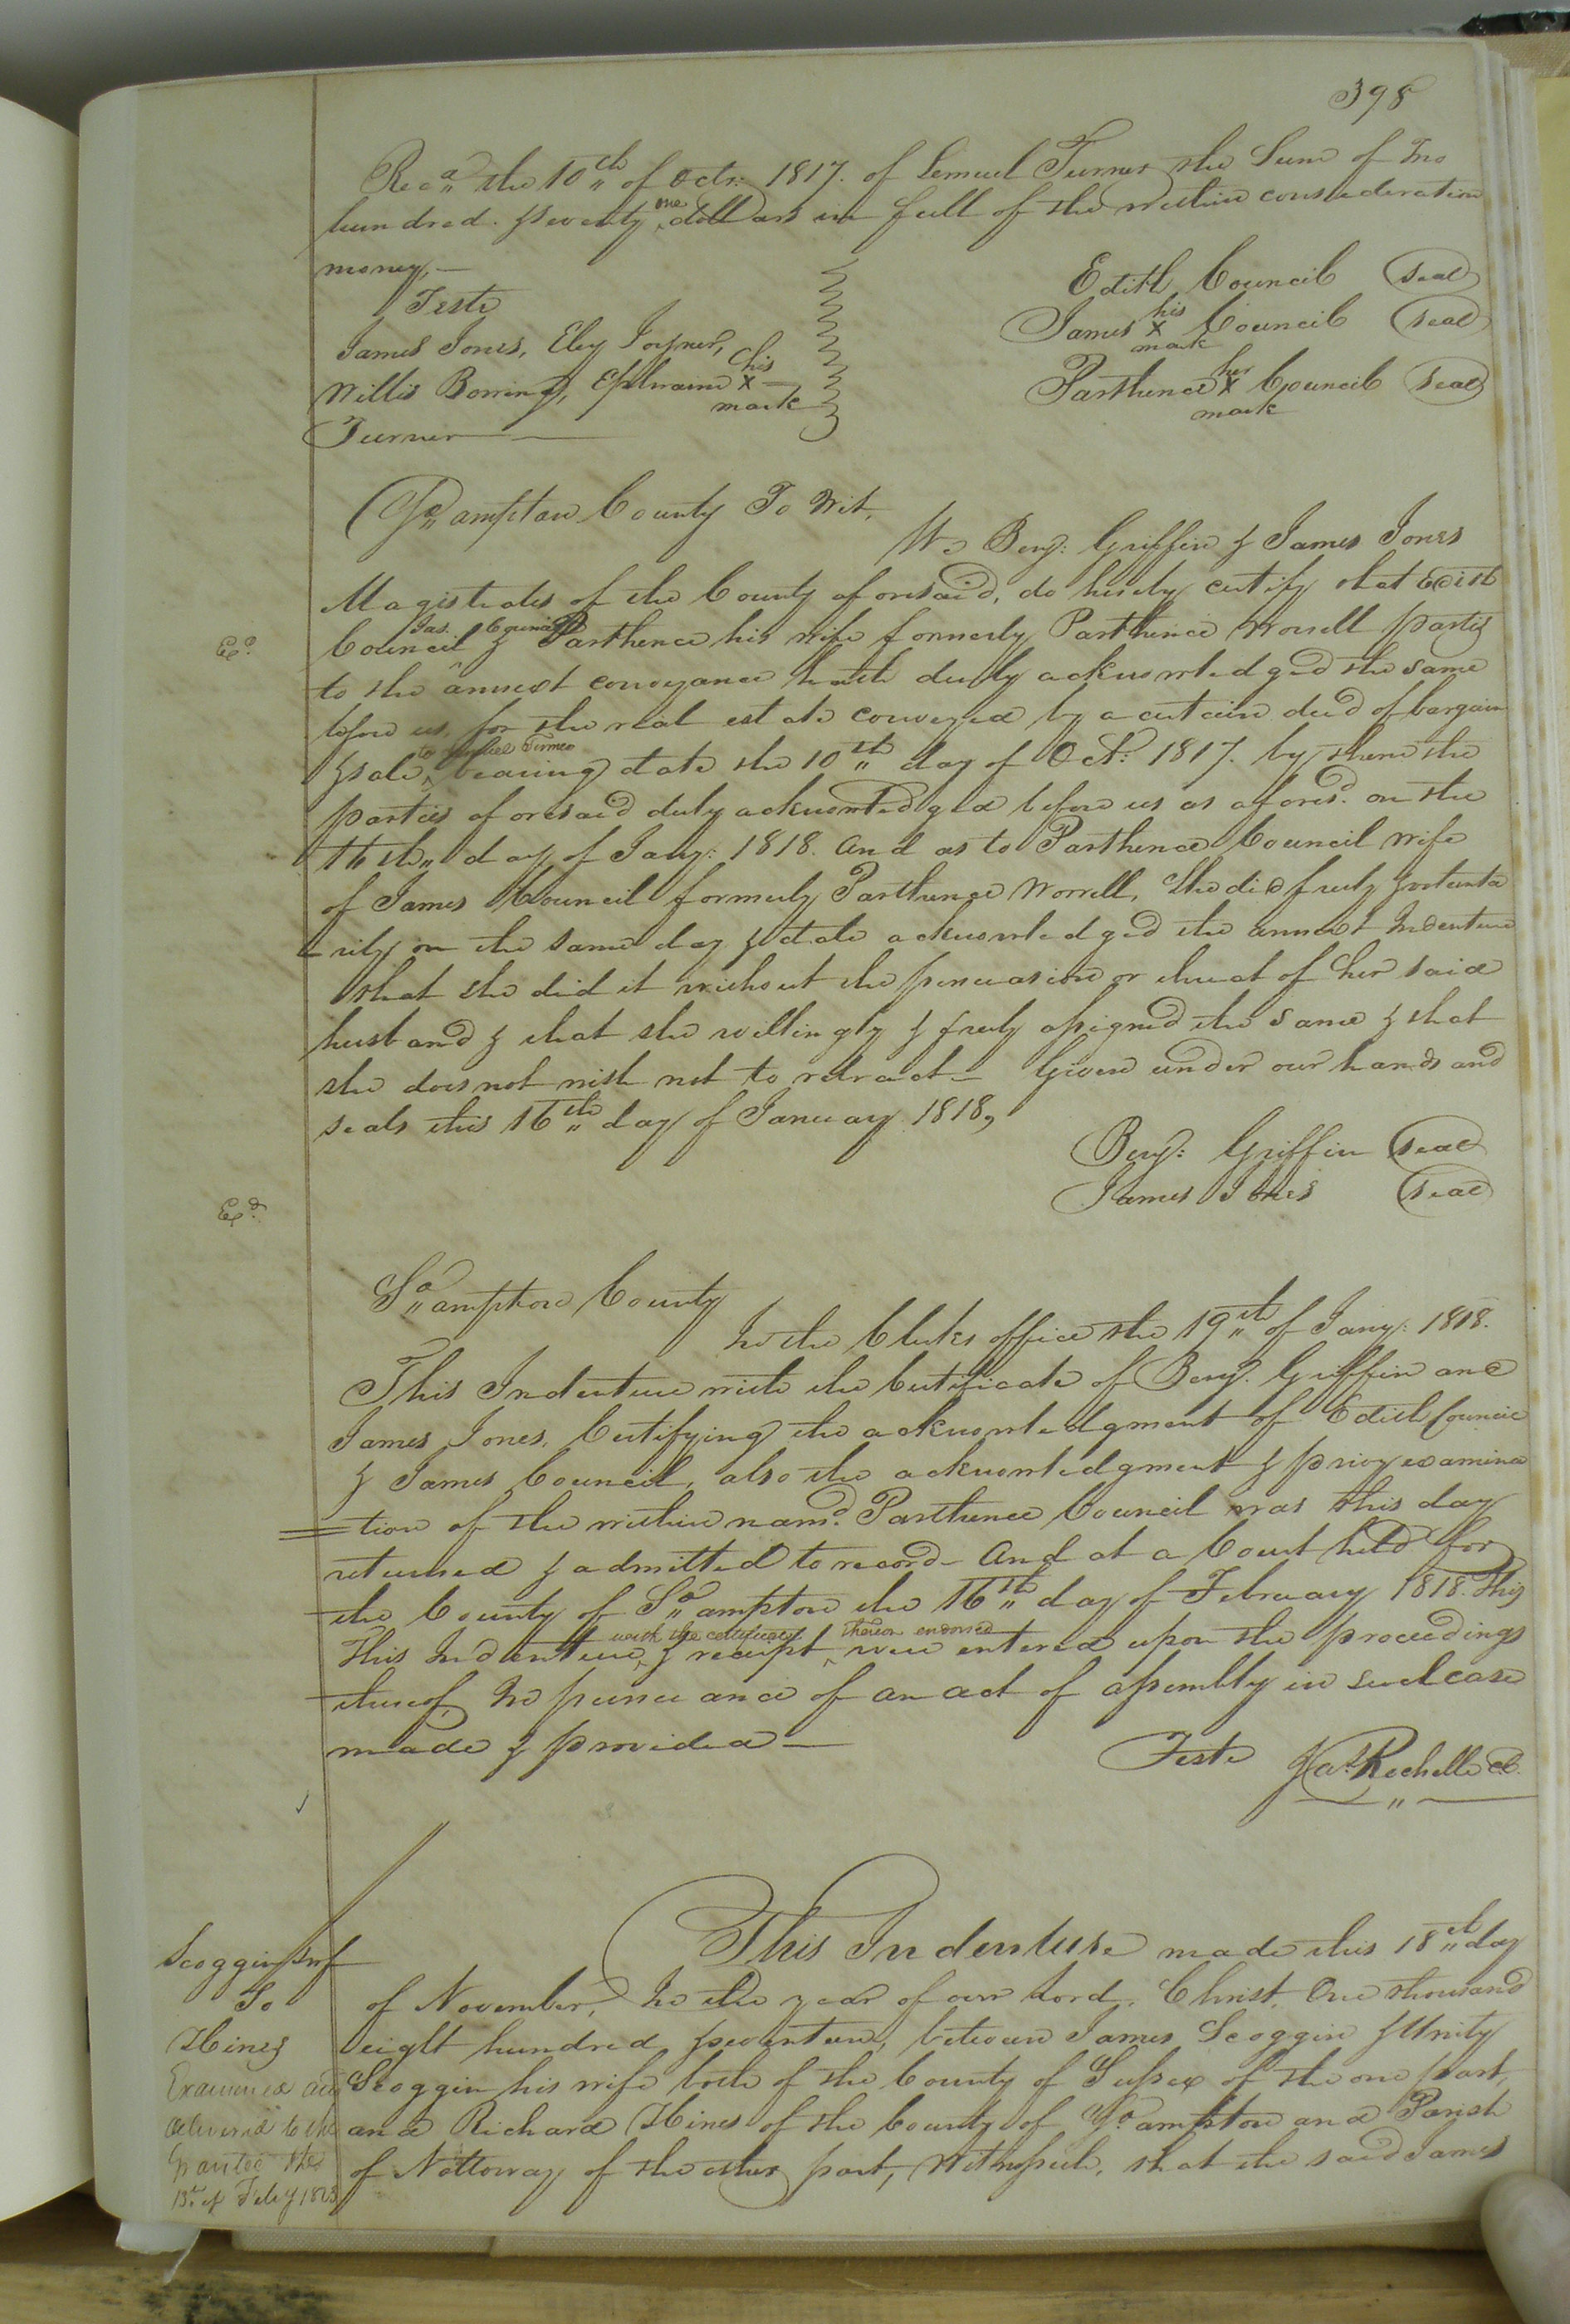 398
Recd the 10th of Octr: 1817. of Lemuel Turner the Sum of Two
hundred & seventy one dollars in full of the within consideration
money,—
Teste
James Jones, Eley Joyner,
Willis Bowing, Ephraim his X mark
Turner
Edith Council (Seal)
James his X mark Council (Seal)
Parthenea her X mark Council (Seal)
Soampton County To Wit,
We Benj: Griffin & James Jones
Magistrates of the County aforesaid, do hereby certify that Edith
Council Jas. Council & Parthenea his wife formerly Parthenea Worrell parties
Exd.
to the annext conveyance hath duly acknowledged the same
before us, for the real estate conveyed by a certain deed of bargain
& sale to Lemuel Turner bearing date the 10th day of Oct: 1817. by them the
parties aforesaid duly acknowledged before us as aforesd. on the
16th day of Jany: 1818. And as to Parthenea Council wife
of James Council formerly Parthenea Worrell, She did freely & volunta
rily on the same day & date acknowledged the annext Indenture
that she did it without the persuasion or threat of her said
husband & that she willingly & freely assigned the same & that
she does not wish not to retract— Given under our hands and
seals this 16th day of January 1818,
Benj: Griffin (Seal)
James Jones (Seal)
Exd.
Soampton County
In the Clerks office the 19th of Jany: 1818.
This Indenture with the Certificate of Benj. Griffin and
James Jones, Certifying the acknowledgment of Edith Council
& James Council, also the acknowledgment & privy examina
tion of the within namd. Parthenea Council was this day
returned & admitted to record— And at a Court held for
the County of Soampton the 16th day of February 1818. This
This Indenture with the certificate & receipt thereon endorsed were entered upon the proceedings
thereof, In pursuance of an act of assembly in such case
made & provided—
Teste Jas Rochelle CC.
This Indenture made this 18th day
Scoggin & wf
To
Hines
Examined and
delivered to the
Grantee the
13th of Feby 1823
of November, In the year of our Lord, Christ, One thousand
eight hundred & seventeen, between James Scoggin & Unity
Scoggin his wife both of the County of Sussex of the one part,
and Richard Hines of the County of So.ampton and Parish
of Nottoway of the other part, Witnesseth, that the said James